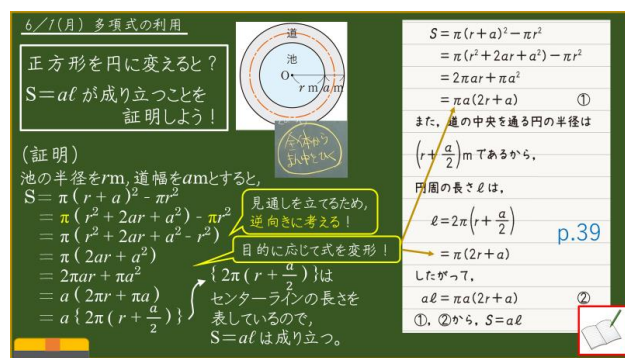 6/1(月) 多項式の利用
正方形を円に変えると？
S=aℓ が成り立つことを
証明しよう！
道
池
O
r m
a m
全体から
まん中をひく
(証明)
池の半径をrm,道幅をamとすると,
S= π(r+a)² - πr²
= π(r²+2ar+a²) - πr²
= π(r²+2ar+a²-r²)
= π(2ar+a²)
= 2πar+πa²
= a(2πr+πa)
= a{2π(r+a/2)}
見通しを立てるため,
逆向きに考える！
目的に応じて式を変形！
{2π(r+a/2)}は
センターラインの長さを
表しているので,
S=aℓ は成り立つ。
S=π(r+a)²-πr²
=π(r²+2ar+a²)-πr²
=2πar+πa²
=πa(2r+a) ①
また，道の中央を通る円の半径は
(r+a/2)m であるから，
円周の長さℓは，
ℓ=2π(r+a/2)
=π(2r+a)
p.39
したがって，
aℓ=πa(2r+a) ②
①，②から，S=aℓ